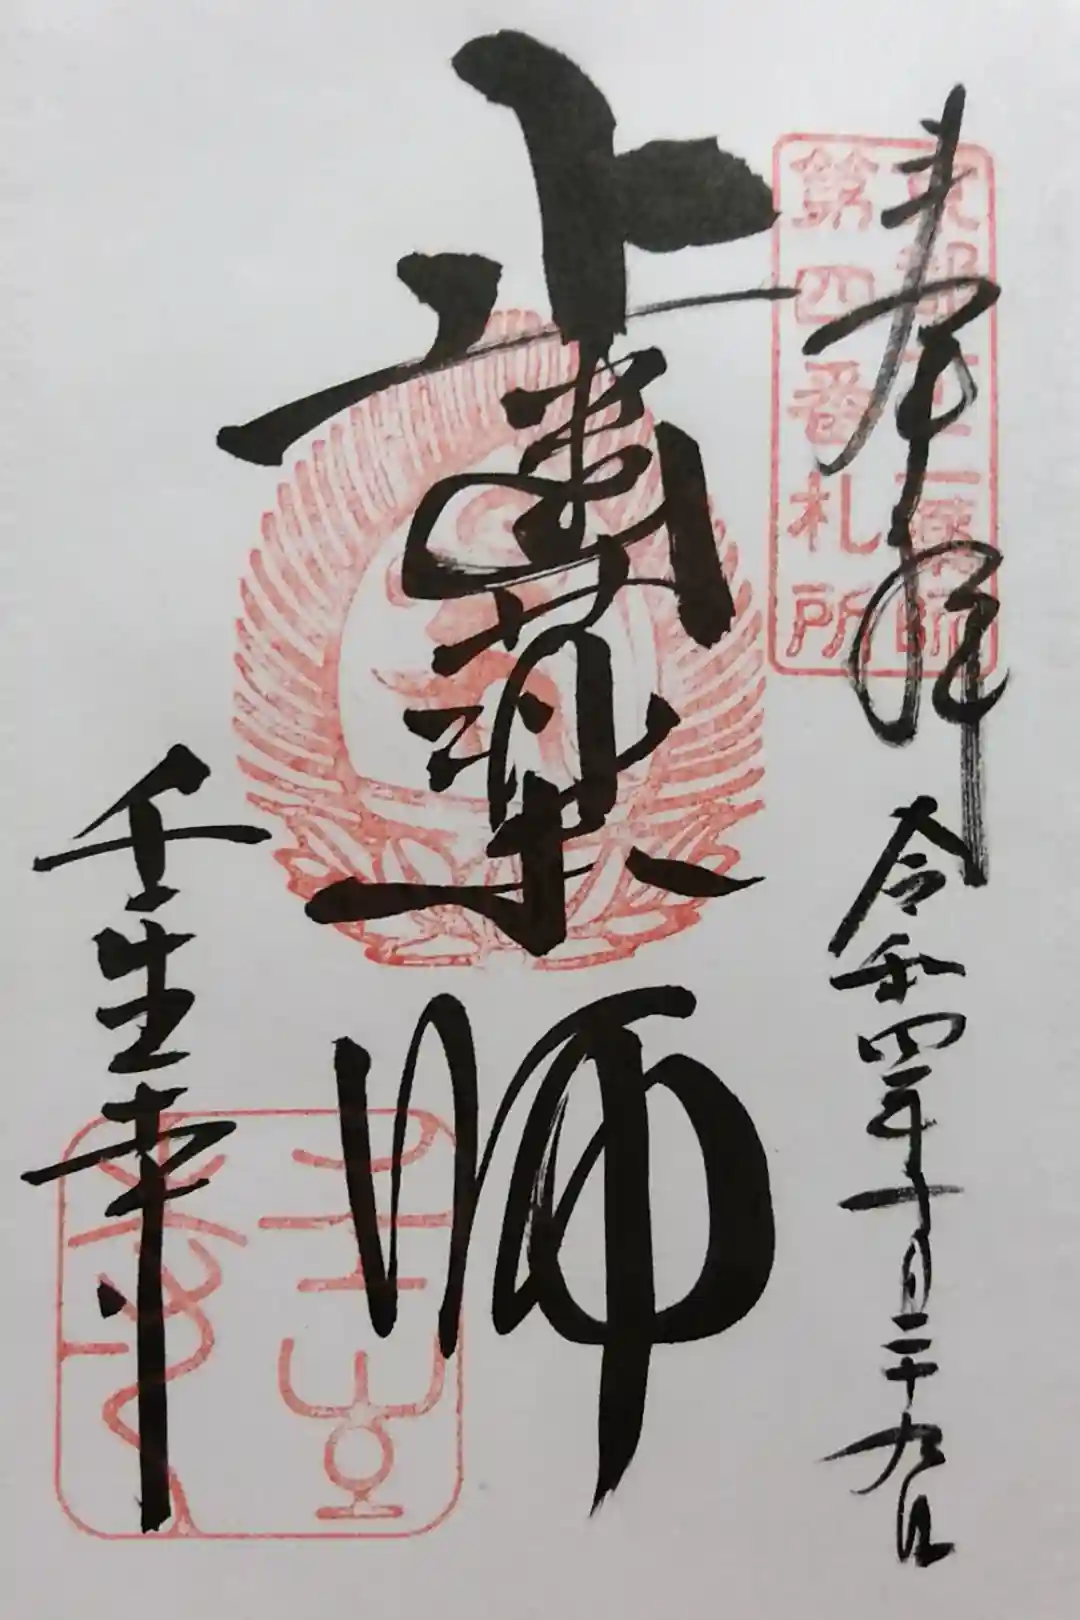 奉拝 令和四年十月二十九日
京都十二薬師
第四番札所
歯薬師
壬生寺